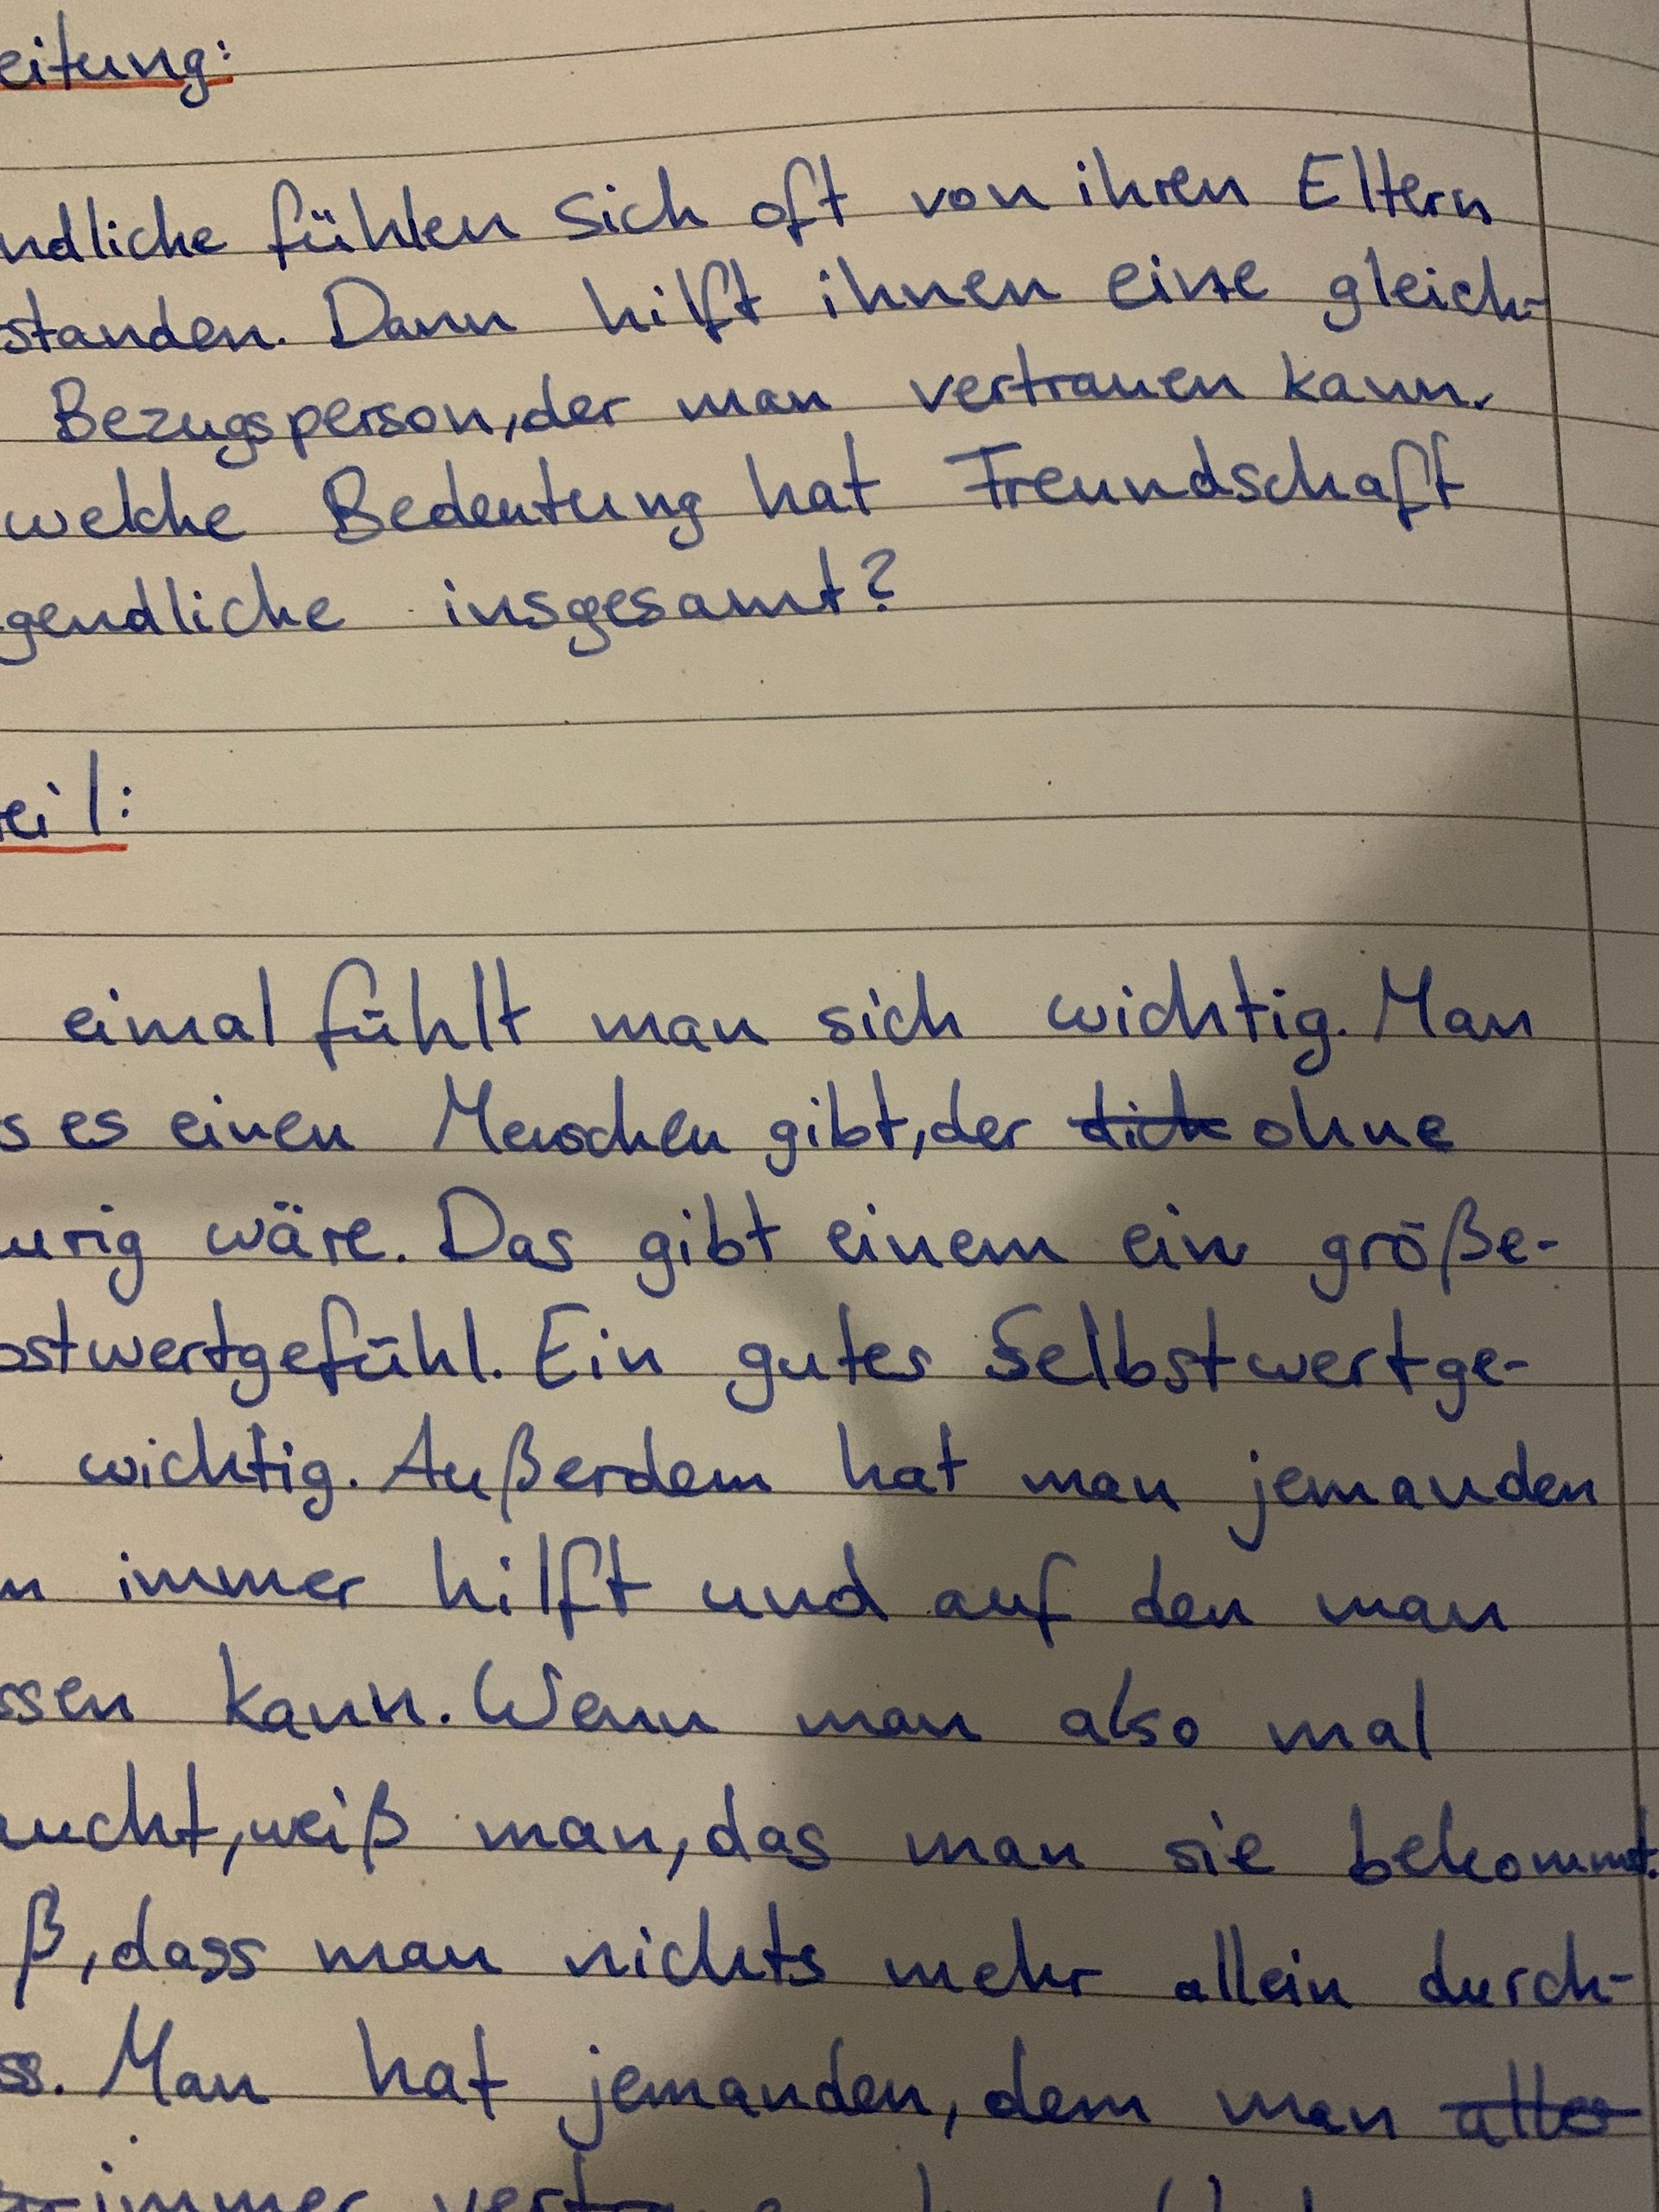 eitung:
ndliche fühlen sich oft von ihren Eltern
standen. Dann hilft ihnen eine gleich-
Bezugsperson, der man vertrauen kann.
welche Bedeutung hat Freundschaft
gendliche insgesamt?
eil:
eimal fühlt man sich wichtig. Man
s es einen Menschen gibt, der dich ohne
urig wäre. Das gibt einem ein größe-
bstwertgefühl. Ein gutes Selbstwertge-
wichtig. Außerdem hat man jemanden
m immer hilft und auf den man
ssen kann. Wenn man also mal
aucht, weiß man, das man sie bekommt.
ß, dass man nichts mehr allein durch-
ss. Man hat jemanden, dem man alles
immer